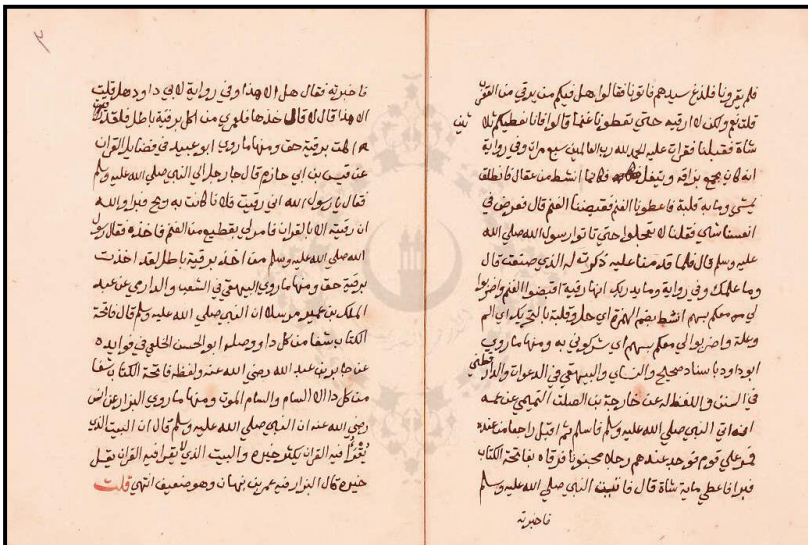 فلم يقرونا فلدغ سيدهم فاتونا فقالوا هل فيكم من يرقي من العقرب
قلت نعم ولكن لا ارقيه حتى تعطونا غنما قالوا فانا نعطيكم ثلاثين
شاة فقبلنا فقرات عليه الحمد لله رب العالمين سبع مرات وفي رواية
انه كان يجمع بزاقه ويتفل فكانما انشط من عقال فانطلق
يمشي وما به قلبة فاعطونا الغنم فقبضنا الغنم قال فعرض في
انفسنا شاي فقلنا لا تعجلوا حتى تاتوا رسول الله صلى الله
عليه وسلم قال فلما قدمنا عليه ذكرت له الذي صنعت قال
وما علمك وفي رواية وما يدريك انها رقية اقبضوا الغنم واضربوا
لي معكم بسهم انشط بضم الهمزة اي حل وقلبة بالتحريك اي الم
وعلة واضربوا لي معكم بسهم اي شركوني به ومنها ما روي
ابو داود باسناد صحيح والنساي والبيهقي في الدعوات والدارقطني
في السنن واللفظ له عن خارجة بن الصلت التميمي عن عمه
انه اتى النبي صلى الله عليه وسلم فاسلم ثم اقبل راجعا من عنده
فمر على قوم فوجد عندهم رجلا مجنونا فرقاه بفاتحة الكتاب
فبرا فاعطي ماية شاة قال فاتيت النبي صلى الله عليه وسلم
فاخبرته
٣
فاخبرته فقال هل الا هذا وفي رواية لابي داود هل قلت
الا هذا قال لا قال خذها فلعمري من اكل برقية باطل فلقد
اكلت برقية حق ومنها ما روي ابو عبيد في فضايل القران
عن قيس بن ابي حازم قال جا رجل الى النبي صلى الله عليه وسلم
فقال يا رسول الله اني رقيت فلانا كانت به ريح فبرا والله
ان رقيته الا بالقران فامر لي بقطيع من الغنم فاخذه فقال رسول
الله صلى الله عليه وسلم من اخذ برقية باطل لقد اخذت
برقية حق ومنها ما روي البيهقي في الشعب والدارمي عن عبد
الملك بن عمير مرسلا ان النبي صلى الله عليه وسلم قال فاتحة
الكتاب شفا من كل دا ووصله ابو الحسن الخلعي في فوايده
عن جابر بن عبد الله رضي الله عنه ولفظه فاتحة الكتاب شفا
من كل دا الا السام والسام الموت ومنها ما روي البزار عن انس
رضي الله عنه ان النبي صلى الله عليه وسلم قال ان البيت الذي
يقرا فيه القران يكثر خيره والبيت الذي لا يقرا فيه القران يقل
خيره قال البزار فيه عمر بن نبهان وهو ضعيف انتهي قلت